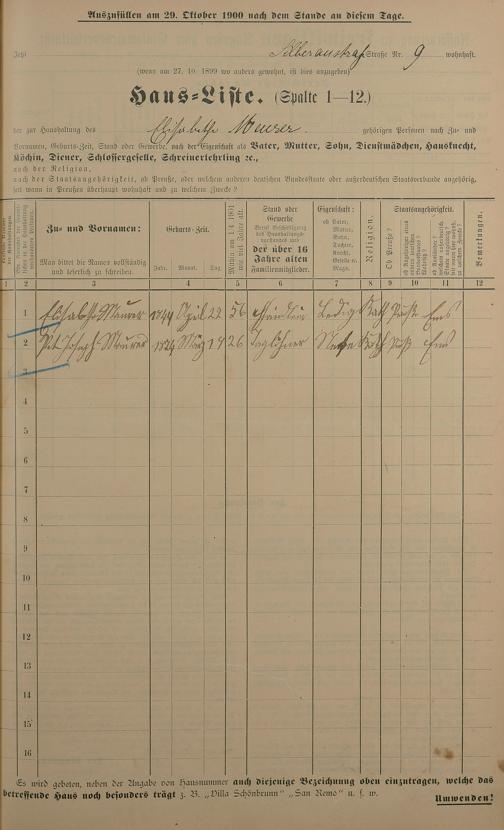 Auszufüllen am 29. Oktober 1900 nach dem Stande an diesem Tage.
Jetzt Straße Nr. 9 wohnhaft.
(wenn am 27. 10. 1899 wo anders gewohnt, ist dies anzugeben)
Haus-Liste. (Spalte 1—12.)
der zur Haushaltung des Elisabethe Meurer gehörigen Personen nach Zu- und
Vornamen, Geburts-Zeit, Stand oder Gewerbe, nach der Eigenschaft als Vater, Mutter, Sohn, Dienstmädchen, Hausknecht,
Köchin, Diener, Schlossergeselle, Schreinerlehrling ꝛc.,
nach der Religion,
nach der Staatsangehörigkeit, ob Preuße, oder welchem anderen deutschen Bundesstaate oder außerdeutschen Staatsverbande angehörig,
seit wann in Preußen überhaupt wohnhaft und zu welchem Zwecke?
Zu- und Vornamen:
Man bittet die Namen vollständig und leserlich zu schreiben.
Geburts-Zeit.
Jahr. Monat. Tag.
Mithin am 1/4 1901 wie viel Jahre alt.
Stand oder Gewerbe
der über 16 Jahre alten Familienmitglieder.
Eigenschaft:
ob Vater, Mutter, Sohn, Tochter, Knecht, Geselle u. Magd.
Religion.
Staatsangehörigkeit.
Ob Preuße?
Bemerkungen.
1 2 3 4 5 6 7 8 9 10 11 12
1 Elisabethe Meurer 1844 April 22 56 Händlerin Ledig Kath Preuße Ems
2 Pet Joseph Meurer März 14 26 Taglöhner Neffe Kath Ems
3
4
5
6
7
8
9
10
11
12
13
14
15
16
Es wird gebeten, neben der Angabe von Hausnummer auch diejenige Bezeichnung oben einzutragen, welche das
betreffende Haus noch besonders trägt z. B. „Villa Schönbrunn" „San Remo" u. s. w.
Umwenden!